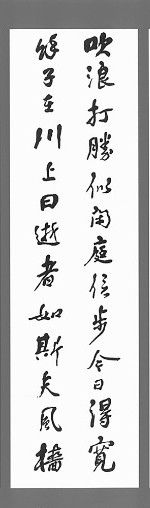 吹浪打勝似閑庭信步今日得寬
餘子在川上曰逝者如斯夫風檣